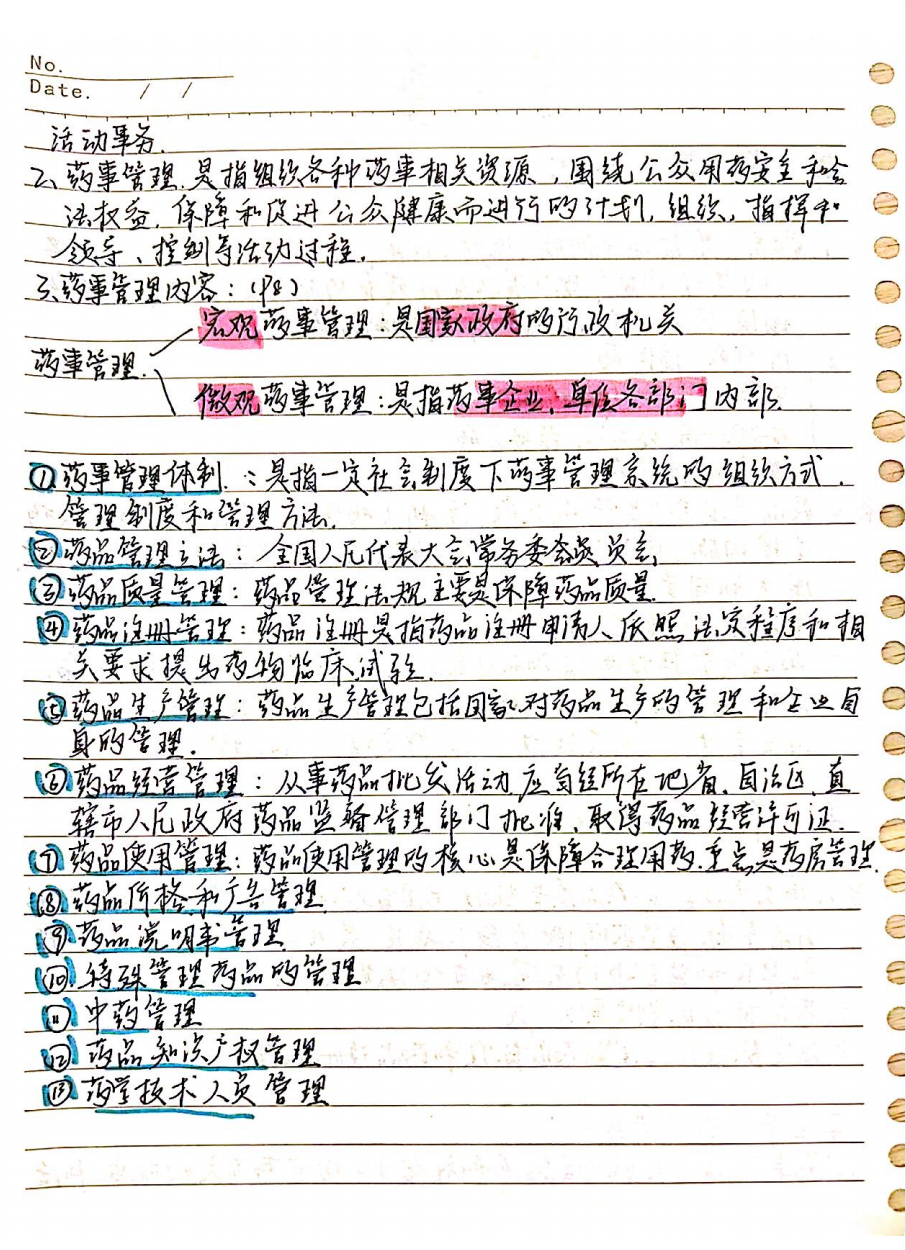 No.
Date. / /
活动事务.
二、药事管理.是指组织各种药事相关资源,围绕公众用药安全和合
法权益,保障和促进公众健康而进行的计划,组织,指挥和
领导、控制等活动过程.
三、药事管理内容:(P8)
宏观药事管理:是国家政府的行政机关
药事管理.
微观药事管理:是指药事企业、单位各部门内部.
①药事管理体制.:是指一定社会制度下药事管理系统的组织方式.
管理制度和管理方法.
②药品管理立法:全国人民代表大会常务委员会
③药品质量管理:药品管理法规主要是保障药品质量
④药品注册管理:药品注册是指药品注册申请人依照法定程序和相
关要求提出药物临床试验.
⑤药品生产管理:药品生产管理包括国家对药品生产的管理和企业自
身的管理.
⑥药品经营管理:从事药品批发活动应当经所在地省、自治区、直
辖市人民政府药品监督管理部门批准,取得药品经营许可证.
⑦药品使用管理:药品使用管理的核心是保障合理用药.重点是药房管理.
⑧药品价格和广告管理
⑨药品说明书管理
⑩特殊管理药品的管理
⑪中药管理
⑫药品知识产权管理
⑬药学技术人员管理